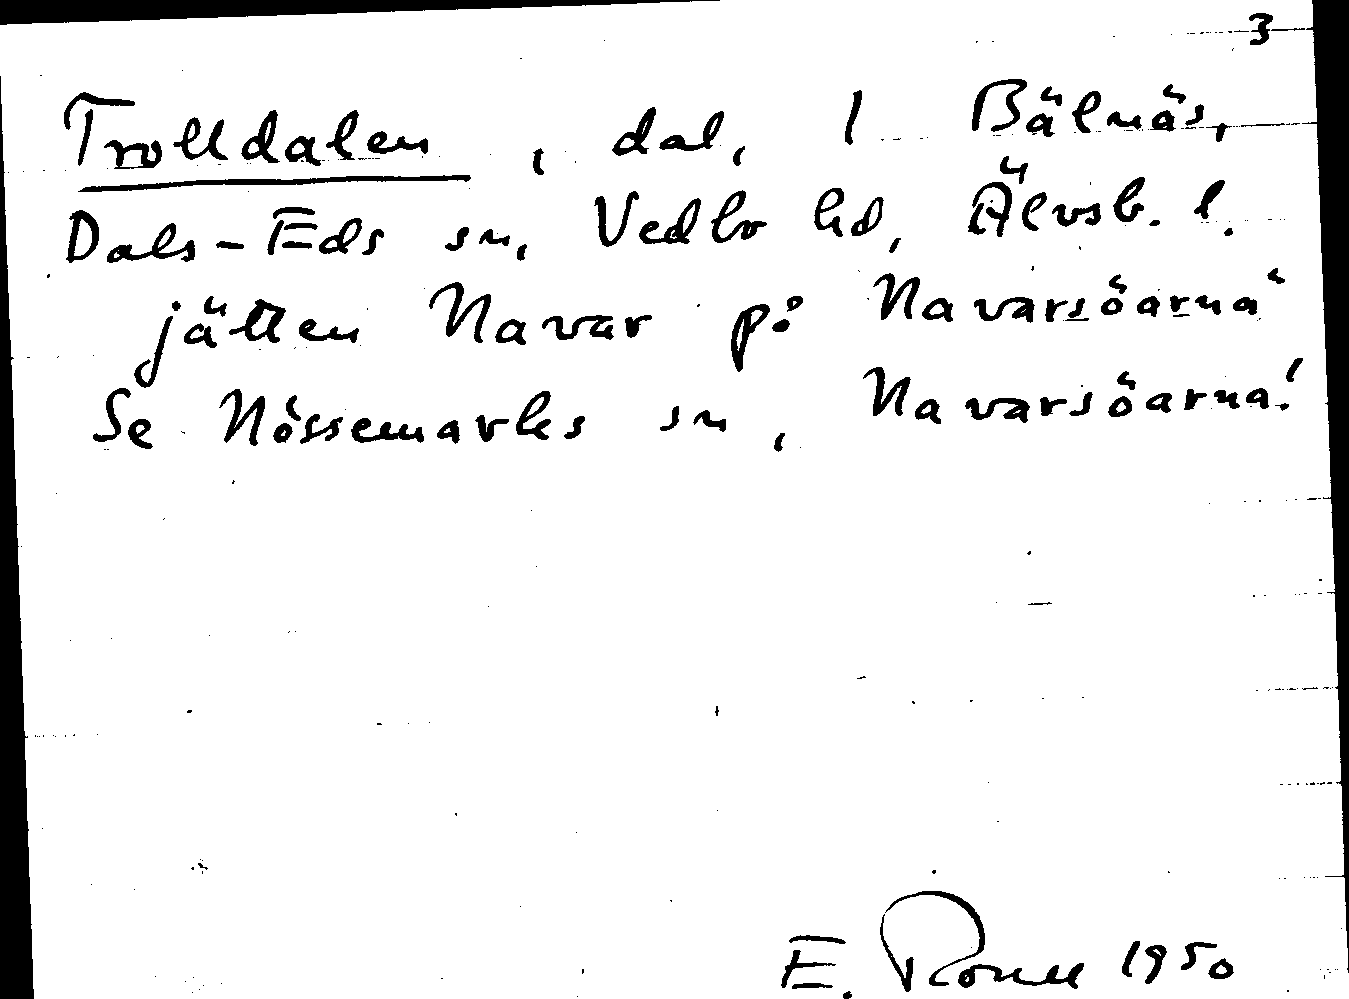 3
Trolldalen, dal, 1 Bälnäs,
Dals-Eds sn, Vedbo hd, Älvsb. l.
jätten Navar på Navarsöarna"
Se Nössemarks sn, Navarsöarna!
E. 1950